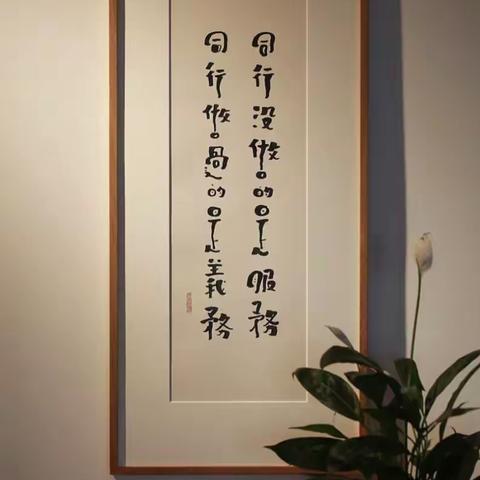 同行没做的是服务
同行做過的是義務